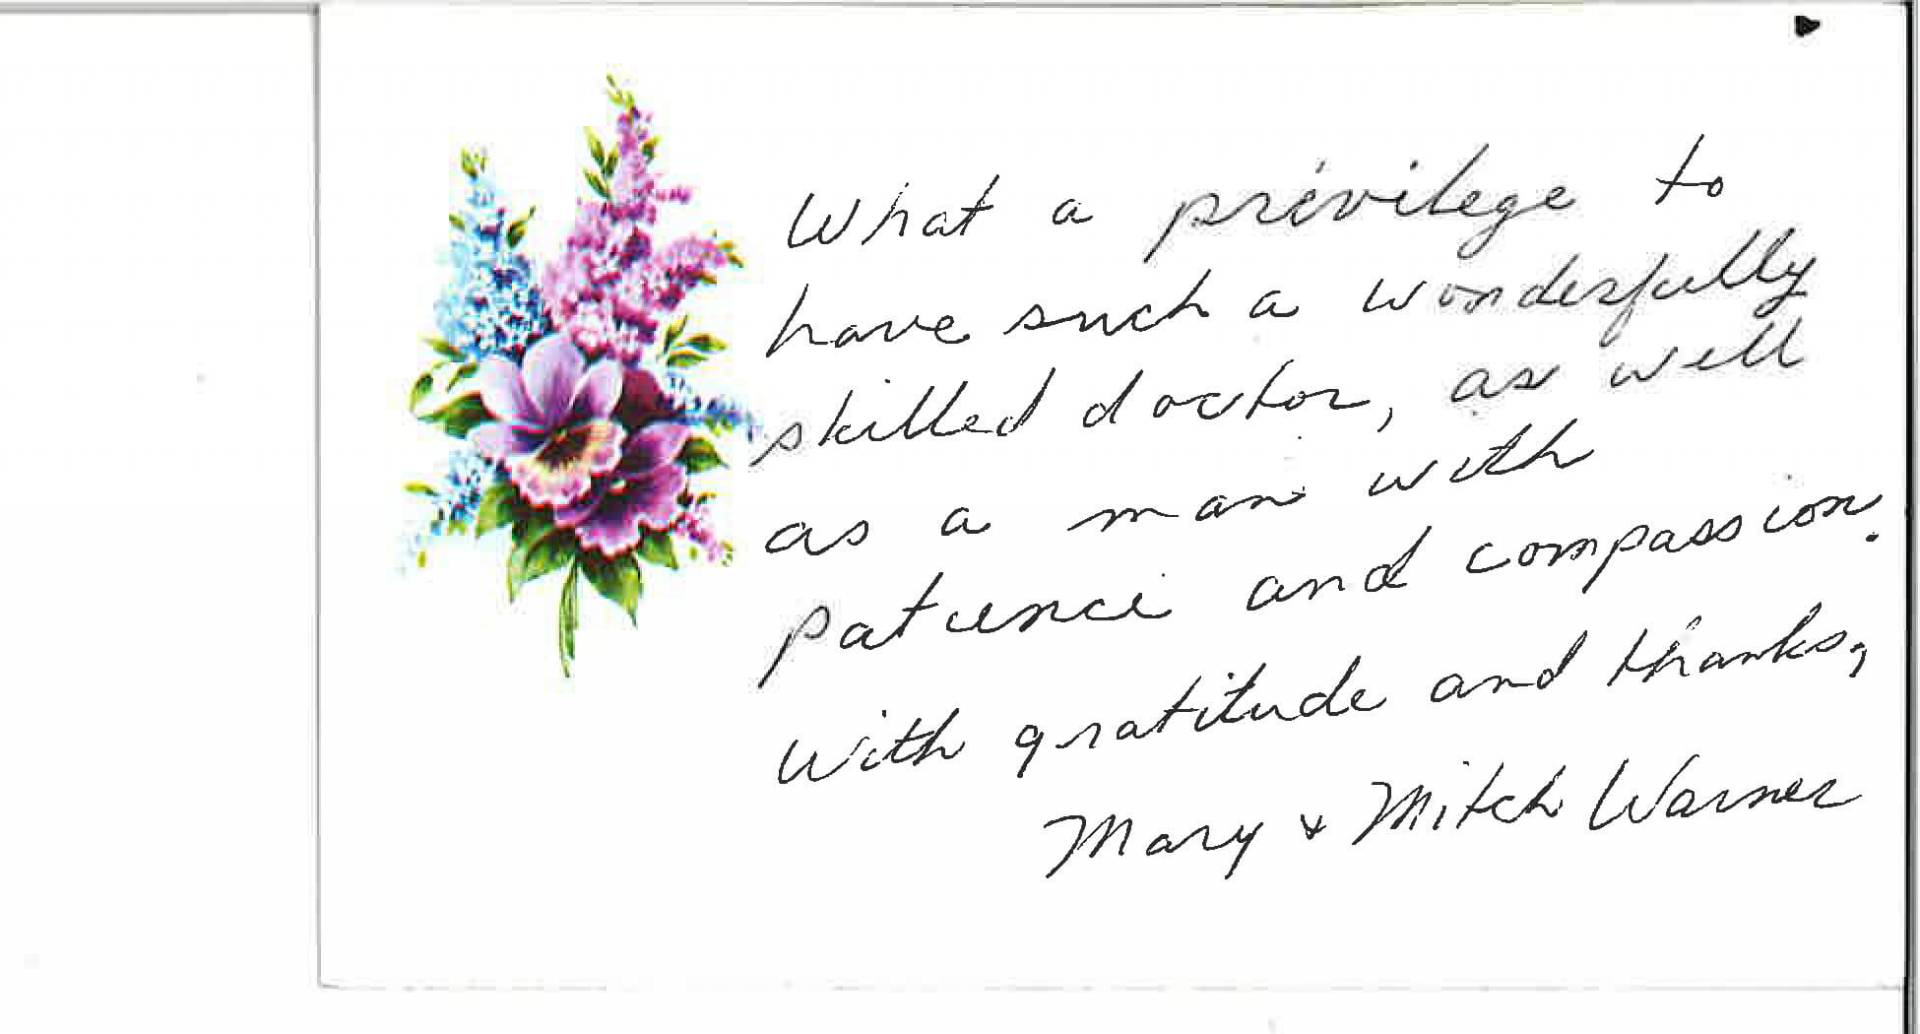 What a privilege to
have such a wonderfully
skilled doctor, as well
as a man with
patience and compassion.
with gratitude and thanks,
Mary & Mitch Warner